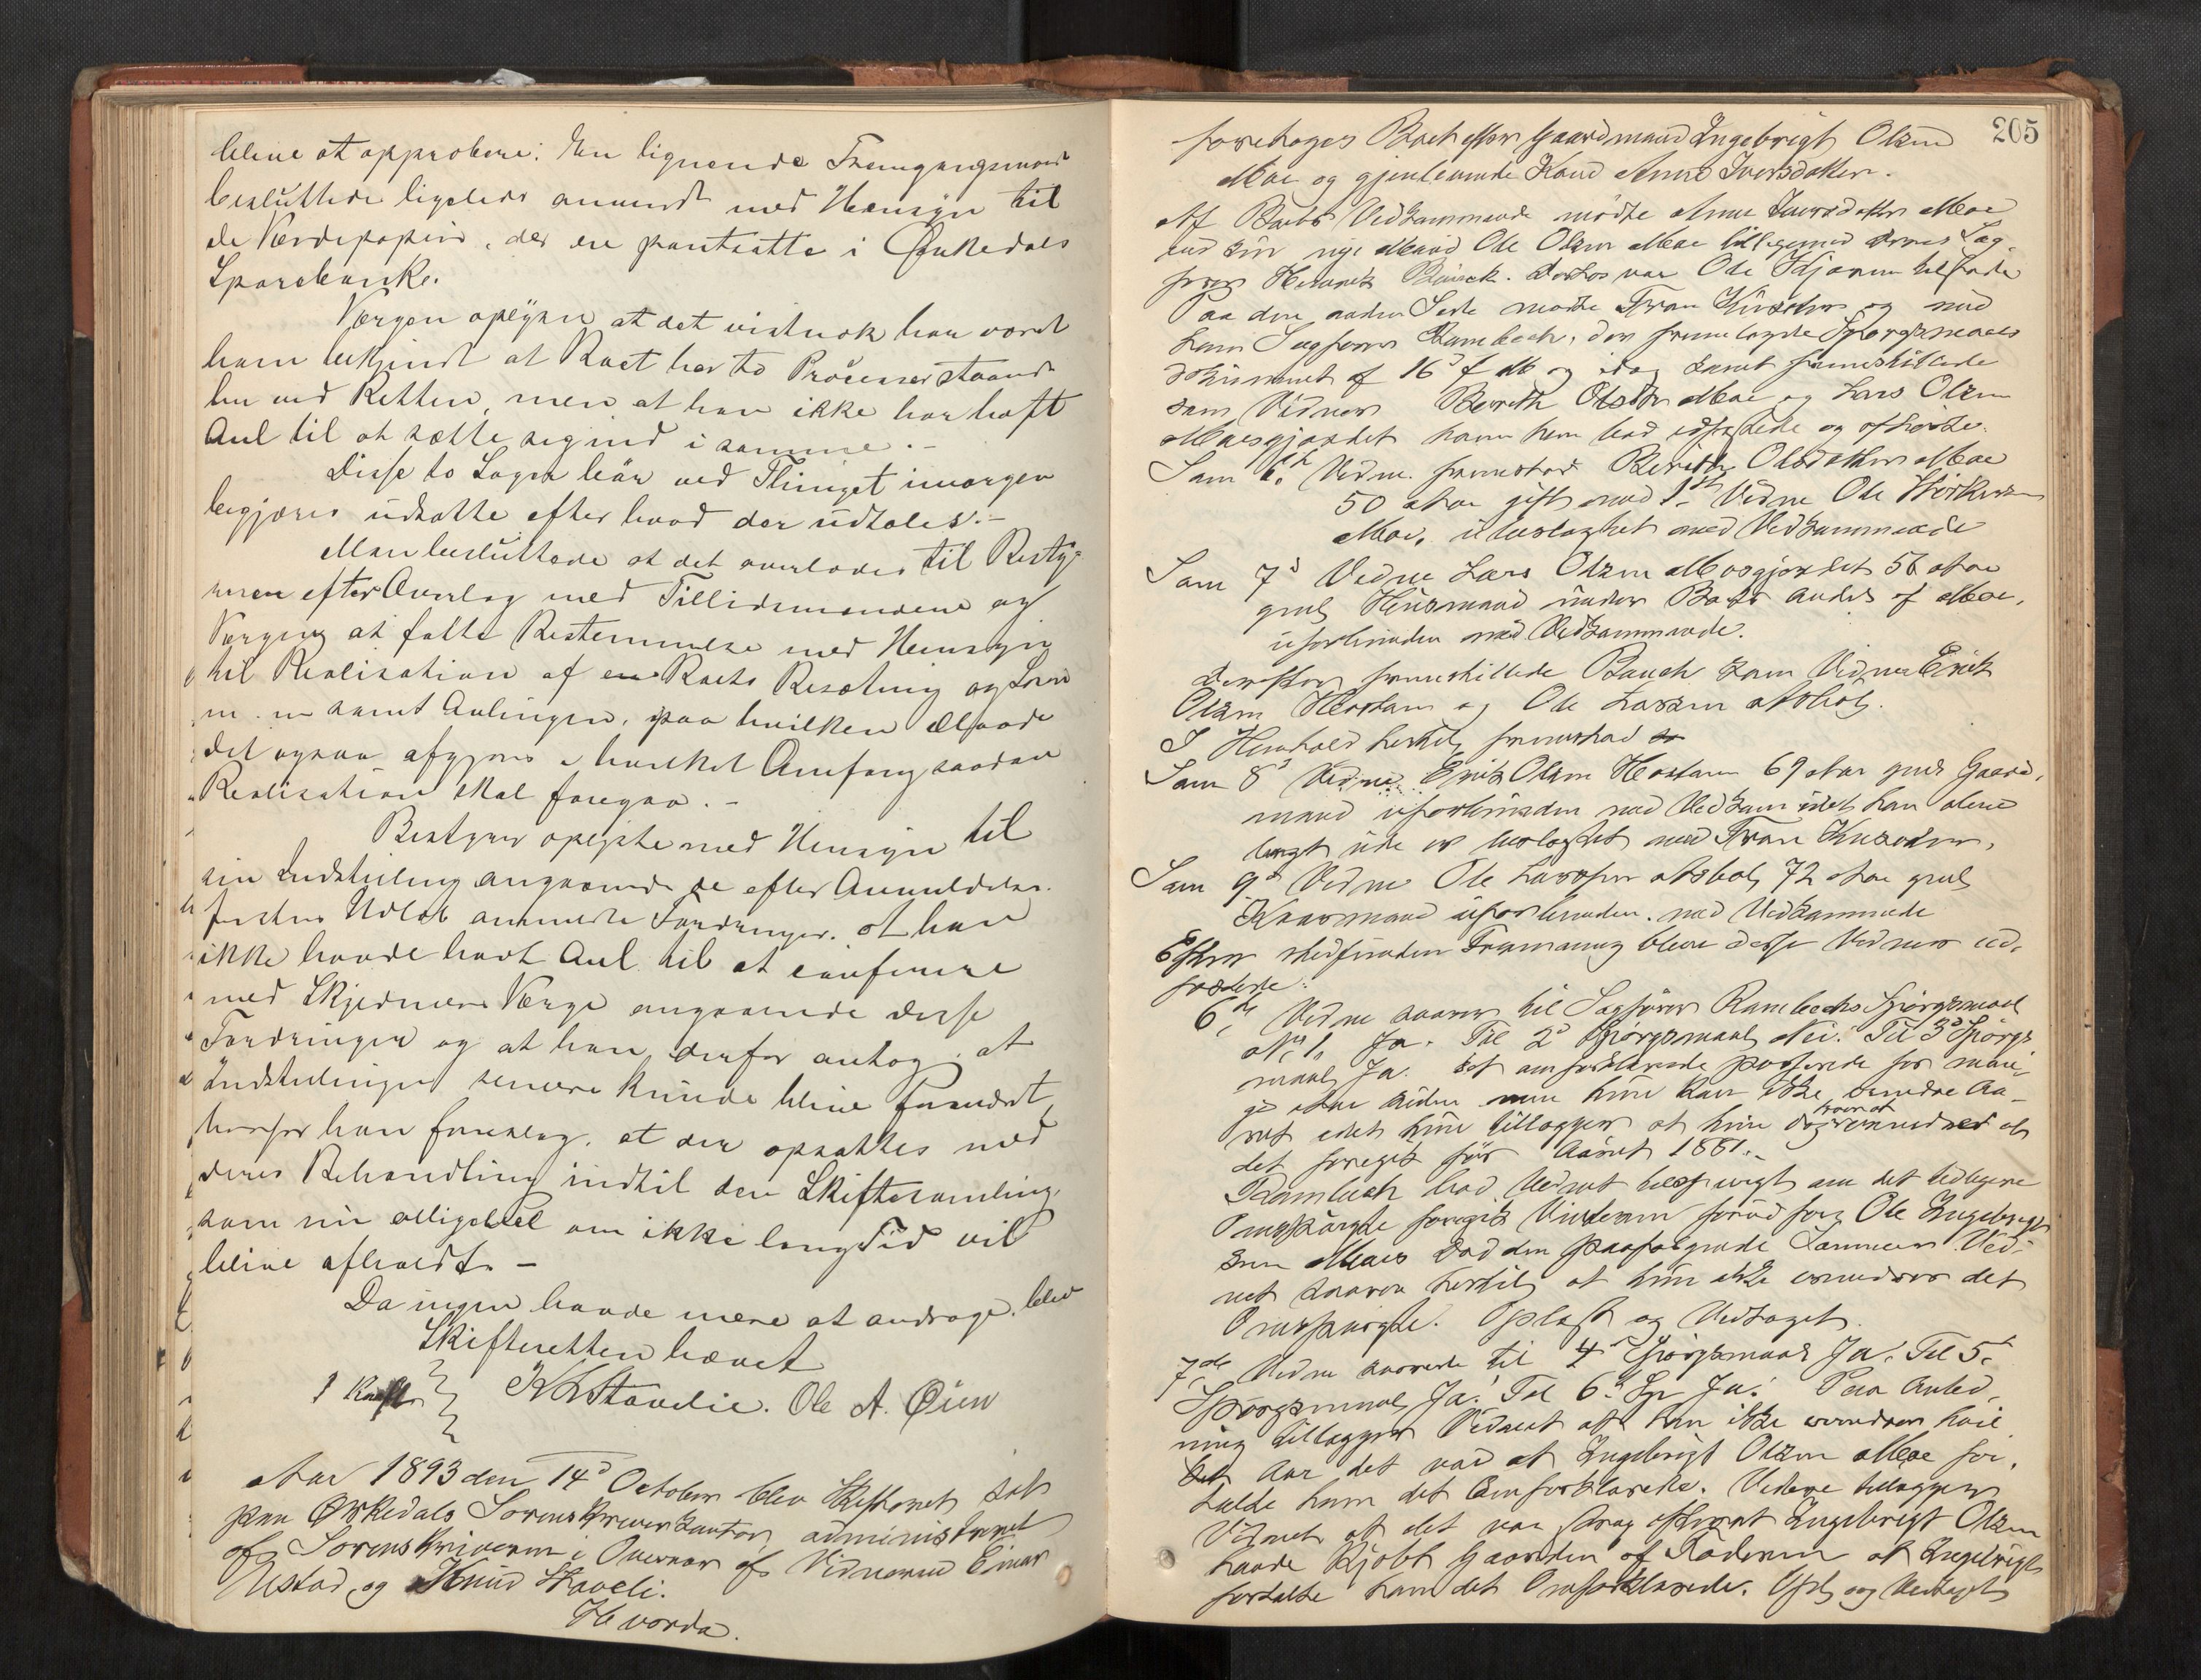 blive at approbere. En lignende Fremgangsmaade
besluttedes ligeledes anvendt med Hensyn til
de Værdipapirer, der ere pantsatte i Ørkedals
Sparebank.
Vergen oplyste at det vistnok har været
ham bekjendt at Raet har to Processer staaende
her ved Retten, men at han ikke har haft
Anl til at sætte sig ind i samme.-
Disse to Sager bør ved Thinget imorgen
begjæres udsatte efter hvad der udtales.-
Man besluttede at det overlodes til Besty-
reren efter Overlæg med Tillidsmændene og
Vergen at fatte Bestemmelse med Hensyn
til Realisation af Raets Besætning og
m. m samt Avlingen, paa hvilken Maade
det ogsaa afgjøres i hvilket Omfang saadan
Realisation skal foregaa.-
Bestyrer oplyste med Hensyn til
sin Indstilling angaaende de efter Anmeldelses-
fristens Udløb anmeldte Fordringer, at han
ikke havde havt Anl til at conferere
med Skyldnerens Verge angaaende disse
Fordringer og at han derfor antog, at
Indstillingen senere kunde blive forandret,
hvorfor han foreslog, at der opsattes med
deres Behandling indtil den Skiftesamling,
som nu alligevel om ikke lang Tid vil
blive afholdt.-
Da ingen havde mere at andrage, blev
Skifteretten hævet
Stavlie. Ole A. Øien
Aar 1893 den 14d October blev Skifteret sat
paa Ørkedals Sorenskriverkontor, administreret
af Sorenskriveren i Overvær af Vidnerne Einar
Ustad og Knud Stavli.
Hvorda.
205
foretoges Boet efter Gaardmand Ingebrigt Olsen
Moe og gjenlevende Kone Anne Iversdatter.
Af Boets Vedkommende mødte Anne Iversdatter Moe
med sin nye Mand Ole Olsen Moe tilligemed deres Sag-
fører Bauck. Desuden var Ole tilstede
Paa den anden Side mødte Fru og med
ham Sagfører Rambech, der fremlagde Spørgsmaals
dokument af 16d f M og idag samt fremstillede
som Vidner Bereth Olsdtr Moe og Lars Olsen
Moesgjærdet hvem han bad edfæstede og afhørte.
Som 6te Vidne fremstod Bereth Olsdatter Moe
50 Aar gift med 1ste Vidne Ole
Moe, ubeslægtet med Vedkommende
Som 7d Vidne Lars Olsen Moesgjærdet 56 Aar
gml Husmand under Boets Andel af Moe,
uforbunden med Vedkommende.
Derefter fremstillede Bauck som Vidner Erik
Olsen Hostam og Ole Larsen Asbøl.
I Henhold hertil fremstod
Som 8d Vidne Erik Olsen Hostam 69 Aar gml Gaard-
mand uforbunden med Vedkom idet han alene
langt ude er beslægtet med Fru
Som 9d Vidne Ole Larsen Asbøl 72 Aar gml
Kaarmand uforbunden med Vedkommende
Efter stedfunden Formaning bleve disse Vidner ed-
fæstede:
6te Vidne svarer til Sagfører Rambechs Spørgsmaal
No 1. Ja. Til 2d Spørgsmaal Nei. Til 3d Spørgs
maal Ja. Det omforklarede passerede for man-
ge Aar siden men hun kan ikke erindre Aa-
ret idet hun tillægger at hun dog troer at erindre at
det foregik før Aaret 1881.-
Rambech bad Vidnet besvaret om det tidligere
Omspurgte foregik Vinteren forud for Ole Ingebrigt
sen Moes Død den paafølgende Sommer. Vid-
net svarer hertil at hun ikke erindrer det
Omspurgte. Oplæst og Vedtaget.
7de Vidne svarede til 4d Spørgsmaal Ja. Til 5.
Spørgsmaal Ja. Til 6d Sp Ja. Paa Anled-
ning tillægger Vidnet at han ikke erindrer hvil
ket Aar det var at Ingebrigt Olsen Moe for-
talte ham det Omforklarede. Videre tillægger
Vidnet at det var strax efterat Ingebrigt Olsen
havde kjøbt Gaarden af Faderen at Ingebrigt
fortalte ham det Omforklarede. Opl og Vedtaget